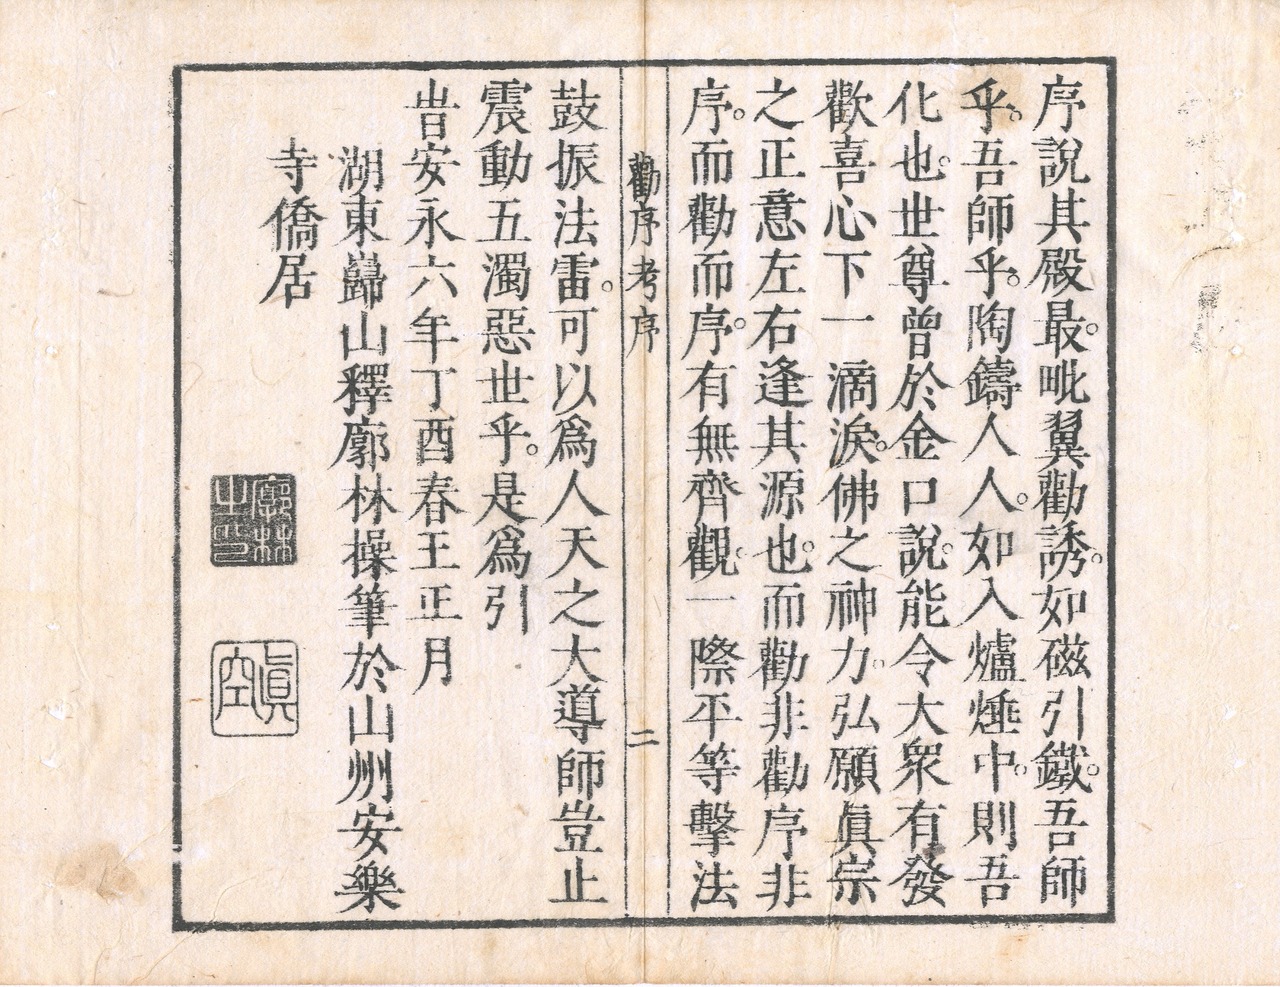 序說其殿最。吡翼勸誘。如磁引鐵。吾師
乎。吾師乎。陶鑄人人。如入爐煙中。則吾
化也。世尊曾於金口說。能令大衆有發
歡喜心下一滴淚。佛之神力。弘願眞宗
之正意左右逢其源也。而勸非勸序非
序。而勸而序。有無齊觀。一際平等擊法
勸序考序 二
鼓振法雷。可以爲人天之大導師豈止
震動五濁惡世乎。是爲引
旹安永六年丁酉春王正月
湖東巋山釋廓林操筆於山州安樂
寺僑居
廓林之印
眞空